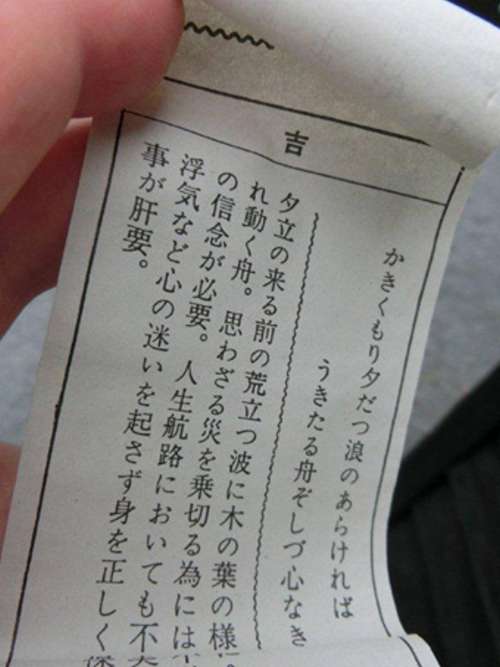 吉
かきくもり夕だつ浪のあらければ
うきたる舟ぞしづ心なき
夕立の来る前の荒立つ波に木の葉の様
れ動く舟。思わざる災を乗切る為には
の信念が必要。人生航路においても不
浮気など心の迷いを起さず身を正しく
事が肝要。